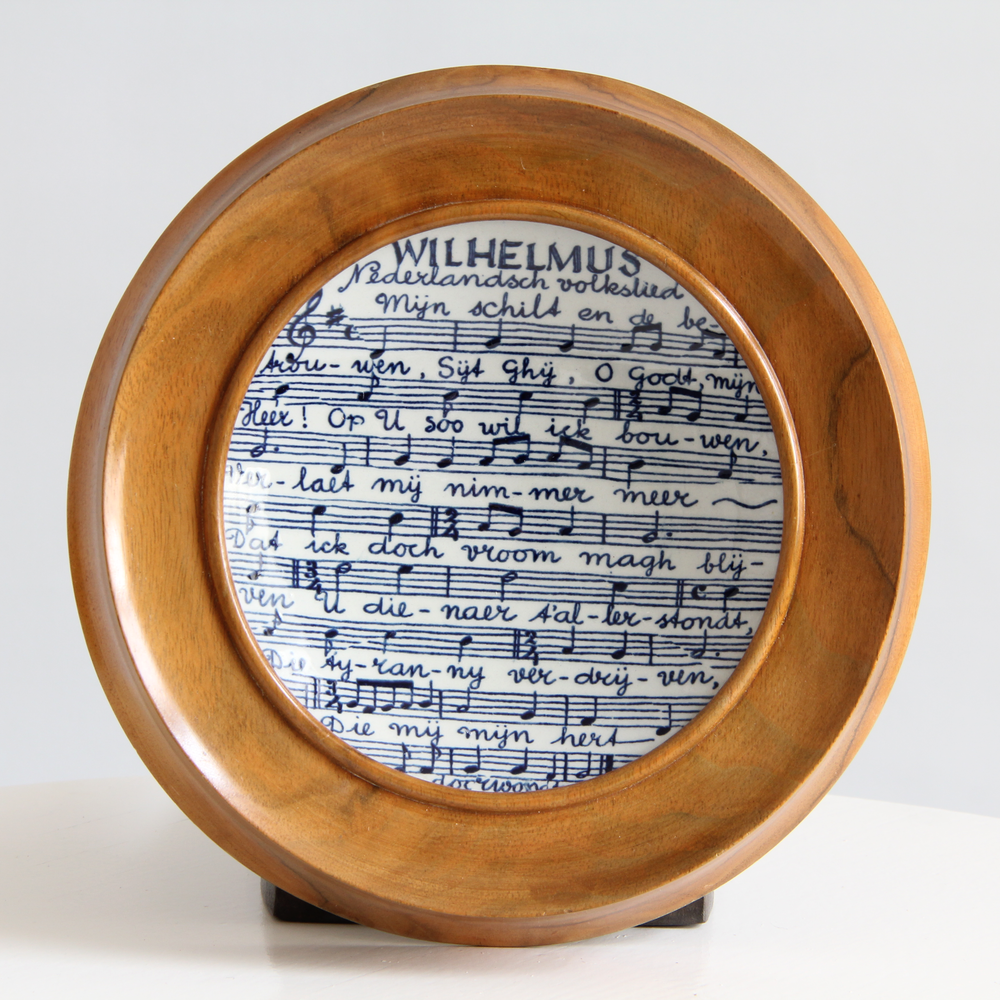 WILHELMUS
Nederlandsch volkslied
Mijn schilt en de be-
trou-wen, Sijt Ghij, O Godt, mijn
Heer! Op U soo wil ick bou-wen,
Ver-laet mij nim-mer meer
Dat ick doch vroom magh blij-
ven U die-naer t'al-ler-stondt,
Die ty-ran-ny ver-drij-ven,
Die mij mijn hert
doorwondt